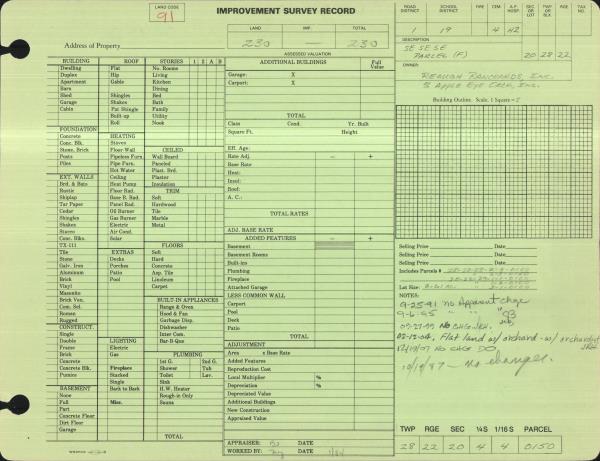 LAND CODE
91
IMPROVEMENT SURVEY RECORD
ROAD DISTRICT SCHOOL DISTRICT FIRE CEM. A.F. HOSP. SEC OR LOT TWP OR BLK RGE TAX NO.
1 19 4 H2
LAND IMP. TOTAL
230 — 230
ASSESSED VALUATION
Address of Property
DESCRIPTION
SE SE SE
PARCEL (F) 20 28 22
OWNER:
REAUGH RANCHANDS, INC.
% APPLE EYE ORCH, INC.
Building Outline. Scale, 1 Square =
BUILDING
Dwelling
Duplex
Apartment
Barn
Shed
Garage
Cabin
ROOF
Flat
Hip
Gable
Shingles
Shakes
Pat Shingle
Built-up
Roll
STORIES 1 2 A B
No. Rooms
Living
Kitchen
Dining
Bed
Bath
Family
Utility
Nook
FOUNDATION
Concrete
Conc. Blk.
Stone, Brick
Posts
Piles
HEATING
Stoves
Floor-Wall
Pipeless Furn.
Pipe Furn.
Hot Water
Ceiling
Heat Pump
Floor Rad.
Base B. Rad.
Panel Rad.
Oil Burner
Gas Burner
Electric
Air Cond.
Solar
CEILED
Wall Board
Paneled
Plast. Brd.
Plaster
Insulation
TRIM
Soft
Hardwood
Tile
Marble
Metal
EXT. WALLS
Brd. & Bats
Rustic
Shiplap
Tar Paper
Cedar
Shingles
Shakes
Stucco
Conc. Blks.
TX-111
Stone
Tile
Galv. Iron
Aluminum
Brick
Vinyl
Masonite
Brick Ven.
Com. Sel.
Roman
Rugged
EXTRAS
Decks
Porches
Patio
Pool
FLOORS
Soft
Hard
Concrete
Asp. Tile
Linoleum
Carpet
BUILT-IN APPLIANCES
Range & Oven
Hood & Fan
Garbage Disp.
Dishwasher
Inter Com.
Bar-B-Que
CONSTRUCT.
Single
Double
Frame
Brick
Concrete
Concrete Blk.
Pumice
LIGHTING
Electric
Gas
Fireplace
Stacked
Single
Back to Back
Misc.
PLUMBING
1st G. 2nd G.
Shower Tub
Toilet Lav.
Sink
H.W. Heater
Rough-in Only
Sauna
TOTAL
BASEMENT
None
Full
Part
Concrete Floor
Dirt Floor
Garage
ADDITIONAL BUILDINGS Full Value
Garage: X
Carport: X
TOTAL
Class Cond. Yr. Built
Square Ft. Height
Eff. Age:
Rate Adj. — +
Base Rate
Heat:
Insul:
Roof:
A. C.:
TOTAL RATES
ADJ. BASE RATE
ADDED FEATURES — +
Basement
Basement Rooms
Built-ins
Plumbing
Fireplace
Attached Garage
LESS COMMON WALL
Carport
Pool
Deck
Patio
TOTAL
ADJUSTMENT
Area x Base Rate
Added Features
Reproduction Cost
Local Multiplier %
Depreciation %
Depreciated Value
Additional Buildings
New Construction
Appraised Value
APPRAISER: DATE
WORKED BY: DATE
Selling Price Date
Selling Price Date
Selling Price Date
Includes Parcels #
Lot Size:
NOTES:
9-25-91 no Apparent chge
9-6-95 " " " 93
NO CHG. JKH.
02-12-04, Flat land w/ orchard - w/ orchardist
12/19/07 NO CHG DO JKH
10/19/87 - no changes.
TWP RGE SEC ¼S 1/16 S PARCEL
28 22 20 4 4 0150